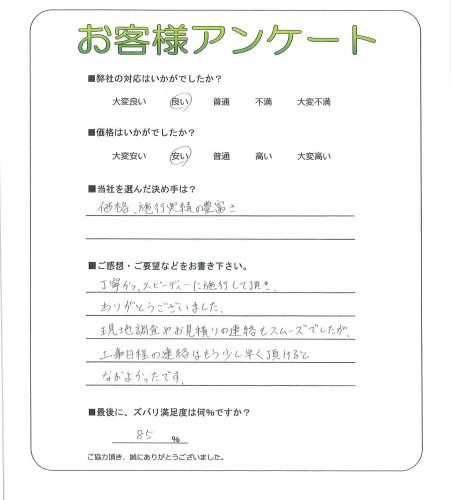 お客様アンケート
■弊社の対応はいかがでしたか？
大変良い 良い 普通 不満 大変不満
■価格はいかがでしたか？
大変安い 安い 普通 高い 大変高い
■当社を選んだ決め手は？
価格、施行実績の豊富さ
■ご感想・ご要望などをお書き下さい。
丁寧かつ、スピーディーに施行して頂き、
ありがとうございました。
現地調査やお見積りの連絡もスムーズでしたが、
工事日程の連絡はもう少し早く頂けると
なおよかったです。
■最後に、ズバリ満足度は何%ですか？
85 %
ご協力頂き、誠にありがとうございました。